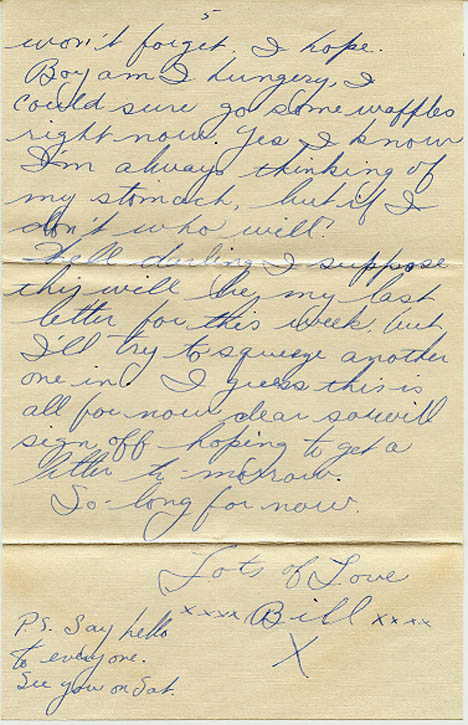 5
won't forget. I hope.
Boy am I hungery, I
could sure go some waffles
right now. Yes I know
I'm always thinking of
my stomach, but if I
don't who will?
Well darling I suppose
this will be my last
letter for this week, but
I'll try to squeeze another
one in. I guess this is
all for now dear so will
sign off hoping to get a
letter to-morrow.
So-long for now.
Lots of Love
xxxx Bill xxxx
X
P.S. Say hello
to everyone.
See you on Sat.